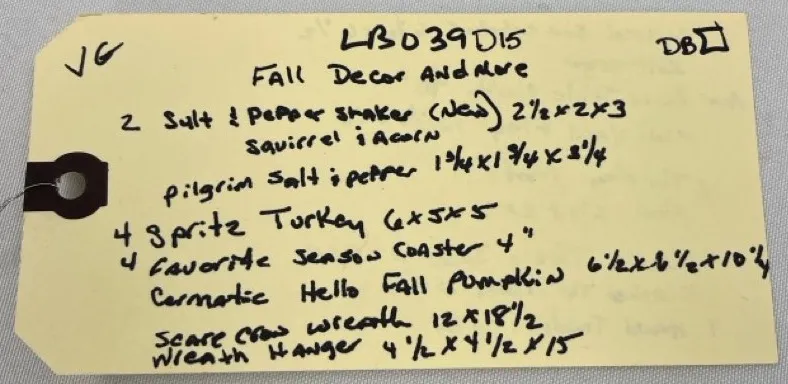 VG
LB039D15
DB
Fall Decor And More
2 Salt & Pepper Shaker (New) 2 1/2 x 2 x 3
Squirrel & Acorn
Pilgrim Salt & Pepper 1 3/4 x 1 3/4 x 3 1/4
4 Spritz Turkey 6x5x5
4 Favorite Season Coaster 4"
Cermatic Hello Fall Pumpkin 6 1/2 x 6 1/2 x 10 1/4
Scare Crow Wreath 12 x 18 1/2
Wreath Hanger 4 1/2 x 4 1/2 x 15